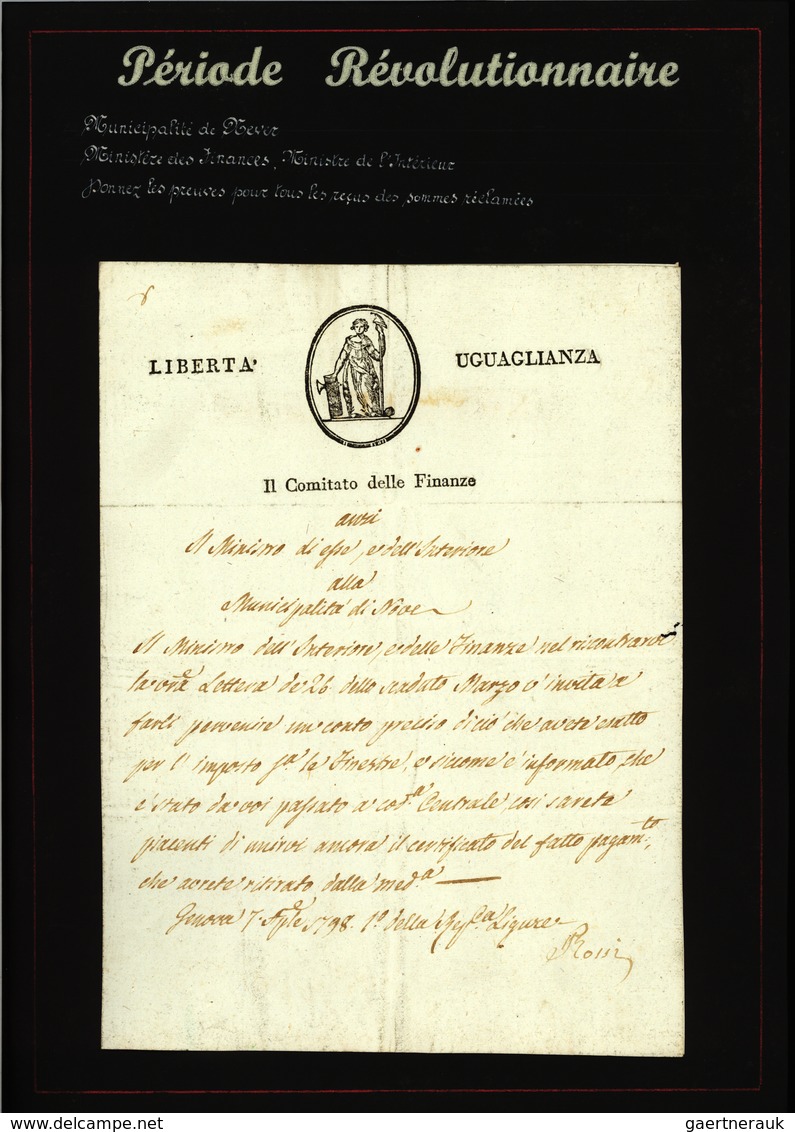 Période Révolutionnaire
Municipalité de Never
Ministère des Finances, Ministre de l'Intérieur
Donnez les preuves pour tous les reçus des sommes réclamées
LIBERTA' UGUAGLIANZA
Il Comitato delle Finanze
Il Ministro di esse, e dell'Interiore
alla
Municipalità di Nove
Il Ministro dell'Interiore, e delle Finanze nel riscontrarvi
la vra Lettera de 26 dello scaduto Marzo v'invita a
farli pervenire un conto preciso di ciò che avete esatto
per l'imposto le Finestre, e siccome è informato, che
è stato da voi passato a cod.a Centrale, così sarete
piacenti di unirvi ancora il certificato del fatto pagam.to,
che avrete ritirato dalla med.a
Genova 7 Aple 1798. 1º della Ligure
Rossi
delcampe.net
gaertnerauk